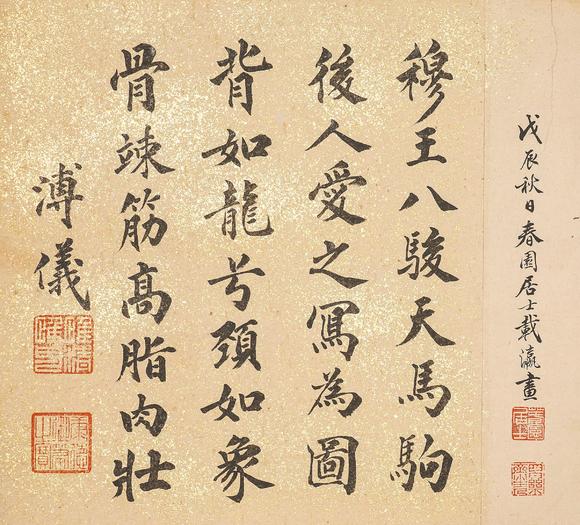 戊辰秋日春園居士載瀛畫
穆王八駿天馬駒
後人愛之冩為圖
背如龍兮頸如象
骨竦筋高脂肉壯
溥儀